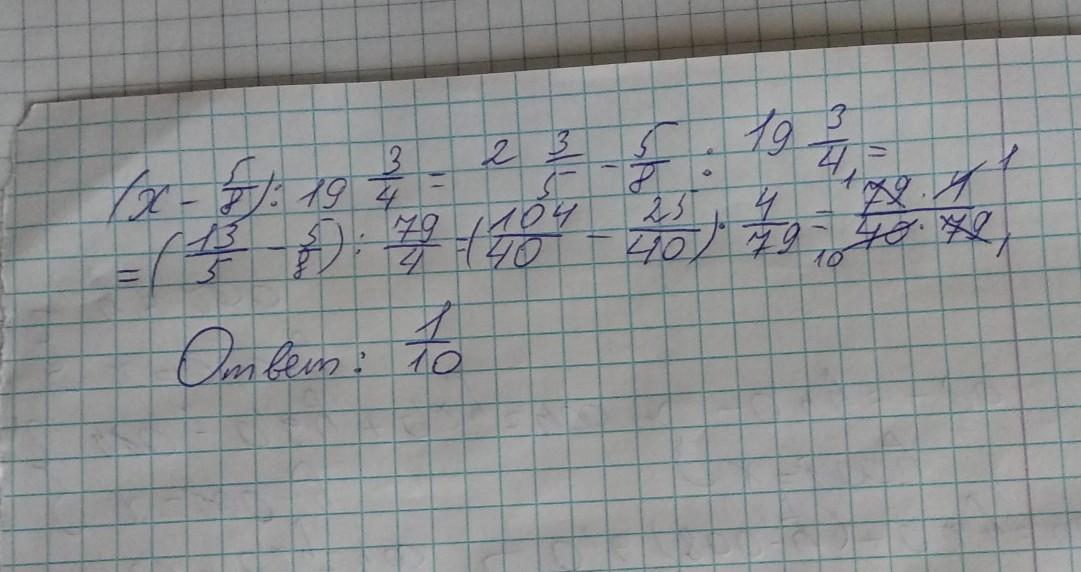 (x - 5/8) : 19 3/4 = 2 3/5 - 5/8 : 19 3/4 =
= (13/5 - 5/8) : 79/4 = (104/40 - 25/40) · 4/79 = 79 · 4 / 40 · 79 1 1 10 1
Ответ: 1/10